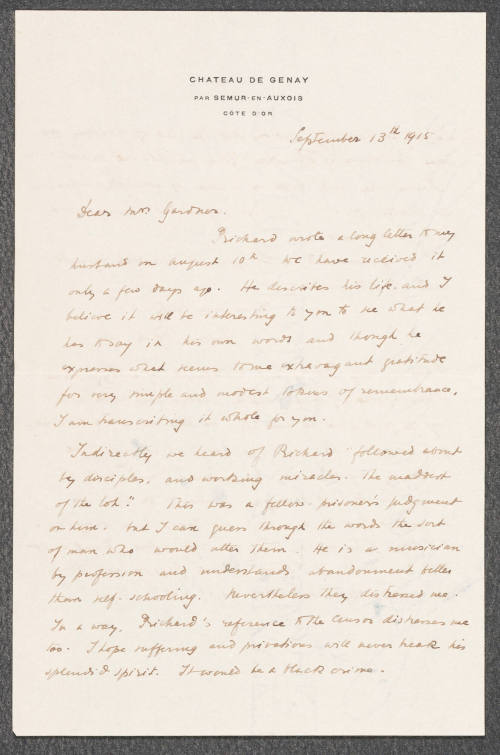 CHATEAU DE GENAY
PAR SEMUR-EN-AUXOIS
COTE D'OR
September 13th 1915
Dear Mrs. Gardner.
Prichard wrote a long letter to my
husband on August 10th. We have received it
only a few days ago. He describes his life, and I
believe it will be interesting to you to see what he
has to say in his own words and though he
expresses what seems to me extravagant gratitude
for very simple and modest tokens of remembrance,
I am transcribing it whole for you.
Indirectly we heard of Prichard "followed about
by disciples, and working miracles. The maddest
of the lot." This was a fellow-prisoner's judgment
on him. but I can guess through the words the sort
of man who would utter them. He is a musician
by profession and understands abandonment better
than self-schooling. Nevertheless they distressed me.
In a way, Prichard's reference to the Censor distresses me
too. I hope suffering and privations will never break his
splendid spirit. It would be a black crime.